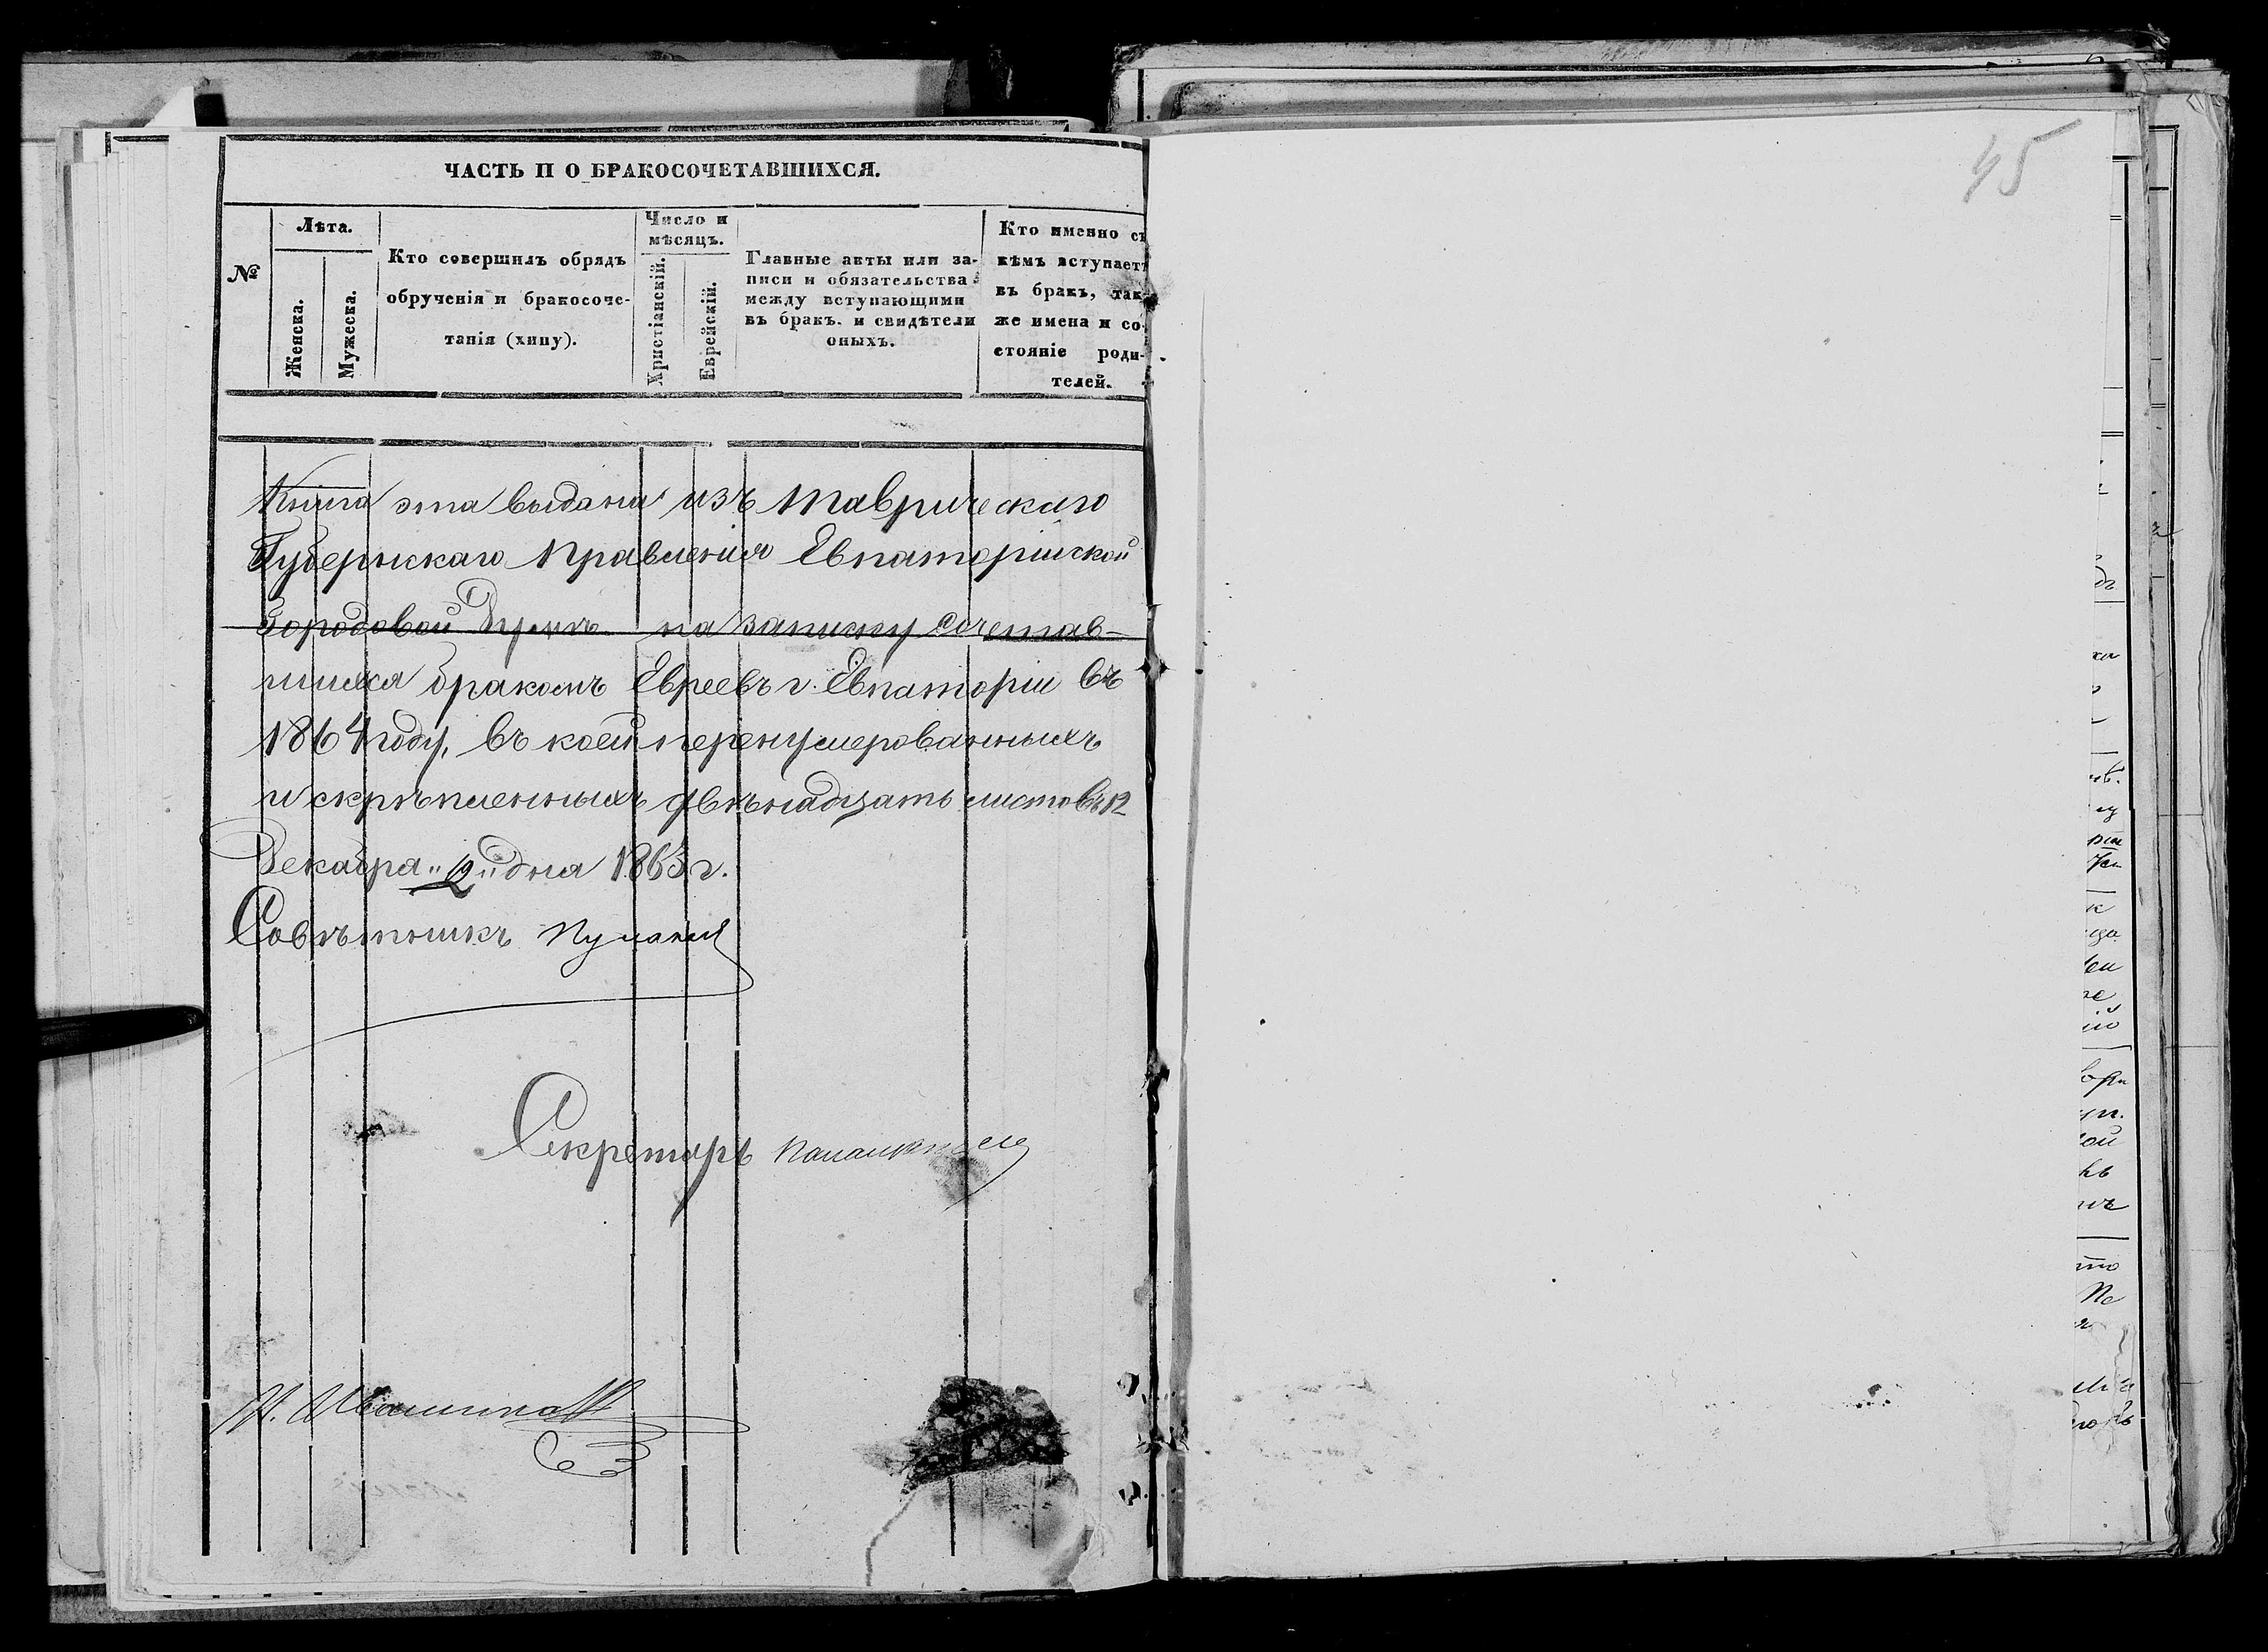 ЧАСТЬ II О БРАКОСОЧЕТАВШИХСЯ.
№
Лѣта.
Женска.
Мужеска.
Кто совершилъ обрядъ
обрученія и бракосоче-
танія (хипу).
Число и
мѣсяцъ.
Христіанскій.
Еврейскій.
Главные акты или за-
писи и обязательства
между вступающими
въ бракъ. и свидѣтели
оныхъ.
Кто именно съ
кѣмъ вступаетъ
въ бракъ, так-
же имена и со-
стояніе роди-
телей.
45
Книга эта выдана изъ Таврическаго
Губернскаго Правленія Евпаторійской
Городовой Думѣ на записку сочетав-
шихся бракомъ Евреевъ г. Евпаторіи въ
1864 году, въ коей перенумерованныхъ
и скрѣпленныхъ двѣнадцать листовъ 12
Декабря "19" дня 1863 г.
Совѣтникъ
Секретарь